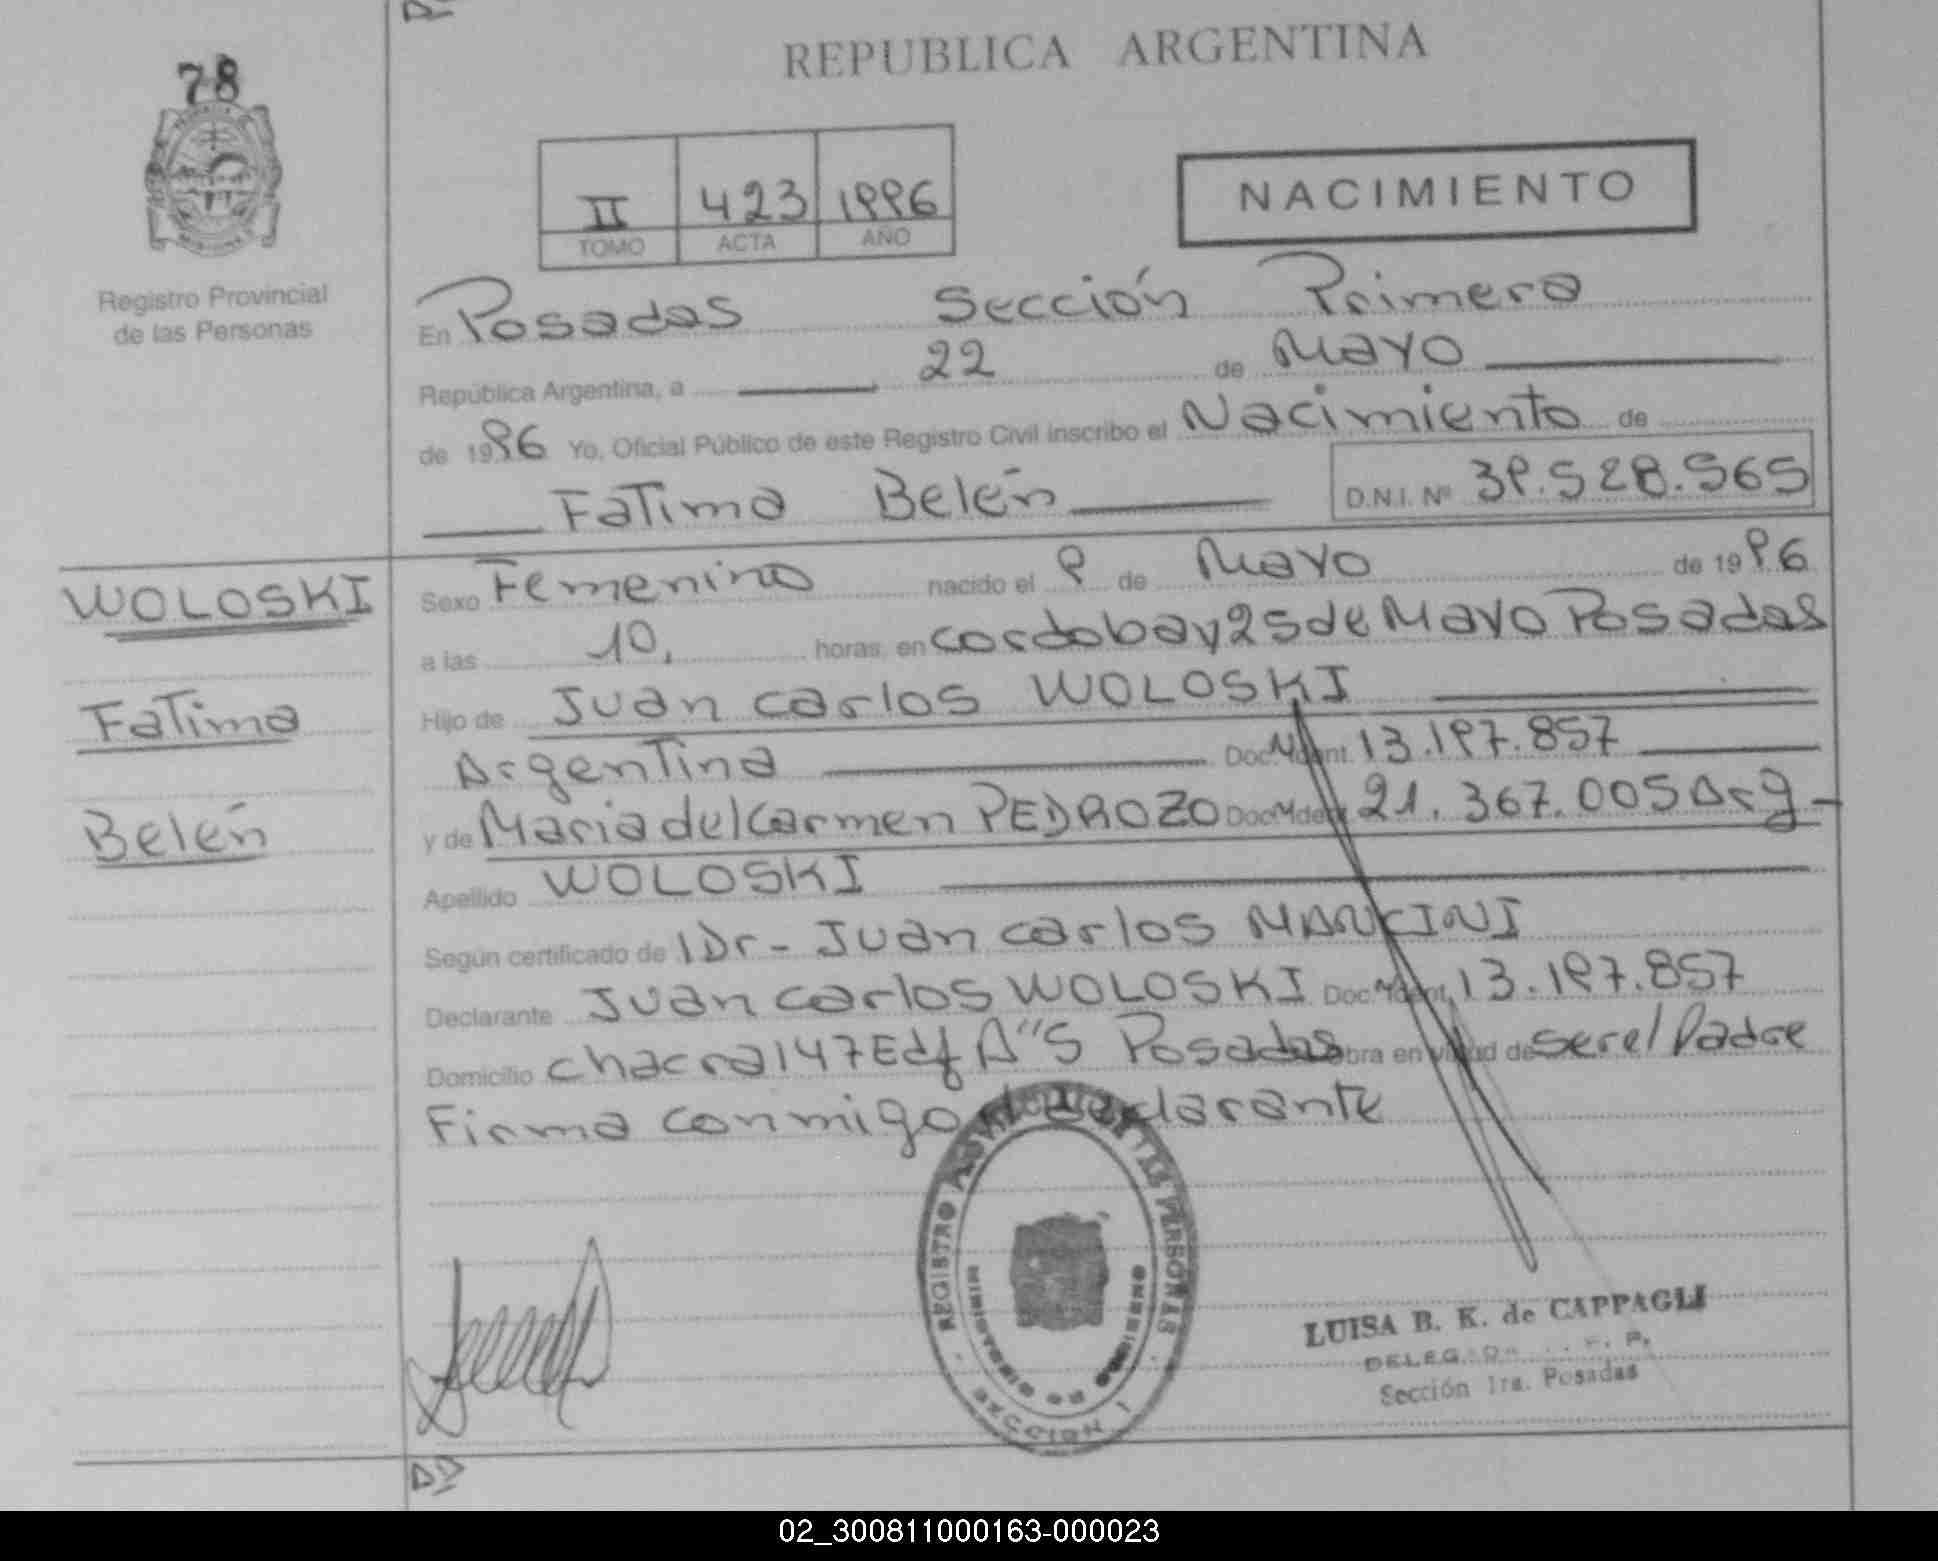 REPUBLICA ARGENTINA
78
II 423 1996
TOMO ACTA AÑO
NACIMIENTO
Registro Provincial
de las Personas
En Posadas Sección Primera
República Argentina, a 22 de Mayo
de 1996 Yo, Oficial Público de este Registro Civil inscribo el Nacimiento de
Fatima Belén D.N.I. Nº 39.528.565
WOLOSKI
Fatima
Belén
Sexo Femenino nacido el 9 de Mayo de 1996
a las 10, horas, en Cordoba y 25 de Mayo Posadas
Hijo de Juan Carlos WOLOSKI
Argentina Doc. Ident. 13.197.857
y de Maria del Carmen PEDROZO Doc. Ident. 21.367.005 Arg-
Apellido WOLOSKI
Según certificado de Dr- Juan Carlos MANCINI
Declarante Juan Carlos WOLOSKI Doc. Ident. 13.197.857
Domicilio Chacra 147 Edf A"5 Posadas obra en virtud de ser el Padre
Firma conmigo el declarante
REGISTRO DE LAS PERSONAS
MINISTERIO DE GOBIERNO
SECCION 1
LUISA B. K. de CAPPAGLI
Sección 1ra. Posadas
02_300811000163-000023